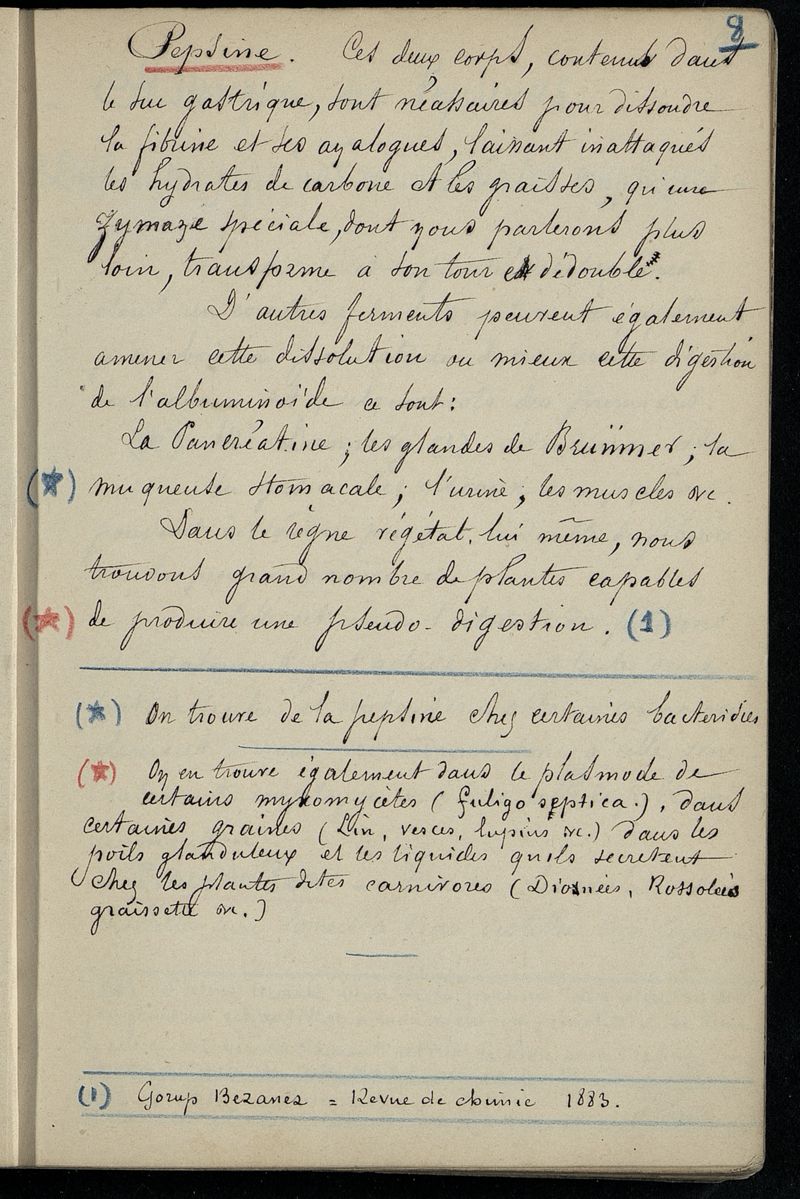 8
Pepsine. Ces deux corps, contenus dans
le suc gastrique, sont nécessaires pour dissoudre
la fibrine et ses analogues, laissant inattaqués
les hydrates de carbone et les graisses, qu'une
zymaze spéciale, dont nous parlerons plus
loin, transforme à son tour et dédouble.
D'autres ferments peuvent également
amener cette dissolution ou mieux cette digestion
de l'albuminoïde ce sont:
La Pancréatine; les glandes de Brünner; la
(★) muqueuse stomacale; l'urine; les muscles &c.
Dans le règne végétal, lui même, nous
trouvons grand nombre de plantes capables
(★) de produire une pseudo-digestion. (1)
(★) On trouve de la pepsine chez certaines bacteridies
(★) On en trouve également dans le plasmode de
certains myxomycètes (fuligo septica.), dans
certaines graines (Lin, vesces, lupins &c.) dans les
poils glanduleux et les liquides qu'ils secretent
chez les plantes dites carnivores (Dionées, Rossoleis
graissette &c.)
(1) Gorup Bezanez = Revue de chimie 1883.